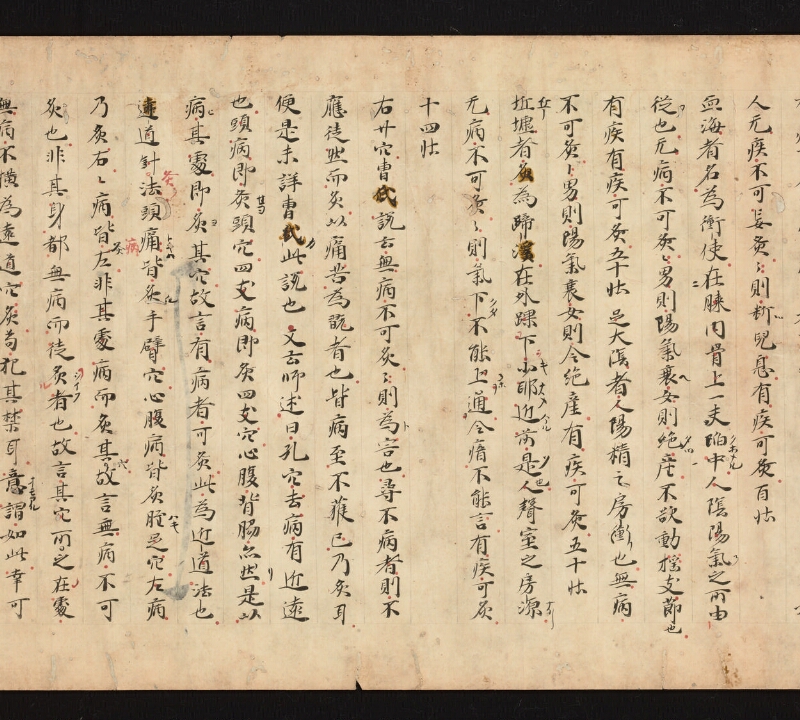 人无疾不可妄灸〻則断児息有疾可灸百怗
血海者名為衝使在膝内骨上一夫陷中人陰陽氣之所由
從也无病不可灸〻男則陽氣衰女則絶産不欲動揺支節也
有疾有疾可灸五十怗 足大陰者人陽精之房衝也無病
不可灸〻男則陽氣衰女則令絶産有疾可灸五十怗
丘墟者灸為蹄在外踝下小邪近前是人聲室之房源
无病不可灸〻則氣下不能上通令瘖不能言有疾可灸
十四怗
右廿穴曹武説云無病不可灸〻則為害也尋不病者則不
應徒然而灸以痛苦為翫者也皆病至不獲已乃灸耳
便是未詳曹武此説也又云師述曰孔穴去病有近遠
也頭病即灸頭穴四支病即灸四支穴心腹背腸亦然是以
病其處即灸其穴故言有病者可灸此為近道法也
遠道針法頭痛皆灸手臂穴心腹病皆灸脛足穴左病
乃灸右〻病皆左非其處病而灸其故言無病不可
灸也非其身都無病而徒灸者也故言其穴所之在處
無病不横為遠道穴灸苟犯其禁耳意謂如此幸可